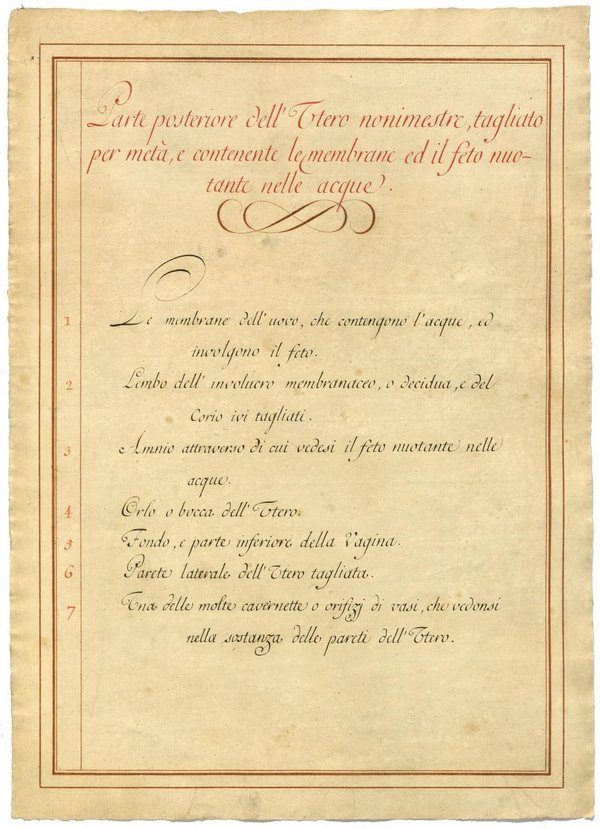 Parte posteriore dell' Utero nonimestre, tagliato
per metà, e contenente le membrane ed il feto nuo-
tante nelle acque.
1 Le membrane dell' uovo, che contengono l'acque, ed
involgono il feto.
2 Limbo dell' involucro membranaceo, o decidua, e del
Corio ivi tagliati.
3 Amnio attraverso di cui vedesi il feto nuotante nelle
acque.
4 Orlo o bocca dell' Utero.
5 Fondo, e parte inferiore della Vagina.
6 Parete laterale dell' Utero tagliata.
7 Una delle molte cavernette o orifizj di vasi, che vedonsi
nella sostanza delle pareti dell' Utero.